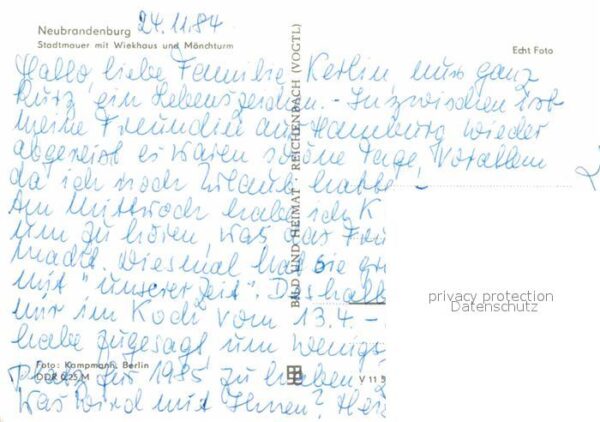 Neubrandenburg 24.11.84
Stadtmauer mit Wiekhaus und Mönchturm
Echt Foto
Hallo, liebe Familie Kerlin, nur ganz
kurz ein Lebenszeichen. - Inzwischen ist
meine Freundin aus Hamburg wieder
abgereist es waren schöne Tage, Vorallem
da ich noch Urlaub hatte
Am Mittwoch habe ich K
um zu hören, was das
macht. Diesmal hat sie
mit "unserer Zeit". Deshalb
mir im vom 13.4. -
habe zugesagt um wenigs
Platz für 1985 zu haben
Was wird mit Ihnen?
BILD UND HEIMAT · REICHENBACH (VOGTL)
privacy protection
Datenschutz
Foto: Kampmann, Berlin
DDR 0,25 M
V 11 5